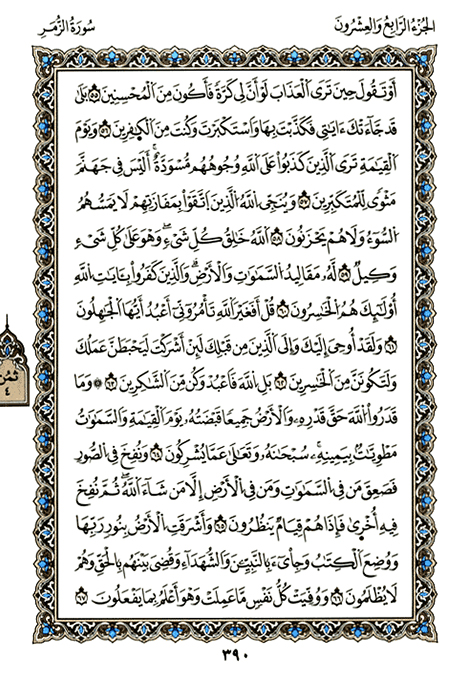 الجُزْءُ الرَّابِعُ وَالعِشْرُونَ
سُورَةُ الزُّمَرِ
أَوْ تَقُولَ حِينَ تَرَى الْعَذَابَ لَوْ أَنَّ لِي كَرَّةً فَأَكُونَ مِنَ الْمُحْسِنِينَ ٥٥ بَلَىٰ
قَدْ جَآءَتْكَ ءَايَٰتِي فَكَذَّبْتَ بِهَا وَاسْتَكْبَرْتَ وَكُنتَ مِنَ الْكَٰفِرِينَ ٥٦ وَيَوْمَ
الْقِيَٰمَةِ تَرَى الَّذِينَ كَذَبُوا عَلَى اللَّهِ وُجُوهُهُم مُّسْوَدَّةٌ ۚ أَلَيْسَ فِي جَهَنَّمَ
مَثْوًى لِّلْمُتَكَبِّرِينَ ٥٧ وَيُنَجِّي اللَّهُ الَّذِينَ اتَّقَوْا بِمَفَازَتِهِمْ لَا يَمَسُّهُمُ
السُّوٓءُ وَلَا هُمْ يَحْزَنُونَ ٥٨ اللَّهُ خَٰلِقُ كُلِّ شَيْءٍ ۖ وَهُوَ عَلَىٰ كُلِّ شَيْءٍ
وَكِيلٌ ٥٩ لَّهُ مَقَالِيدُ السَّمَٰوَٰتِ وَالْأَرْضِ ۗ وَالَّذِينَ كَفَرُوا بِـَٔايَٰتِ اللَّهِ
أُوْلَٰٓئِكَ هُمُ الْخَٰسِرُونَ ٦٠ قُلْ أَفَغَيْرَ اللَّهِ تَأْمُرُونِّي أَعْبُدُ أَيُّهَا الْجَٰهِلُونَ
٦١ وَلَقَدْ أُوحِيَ إِلَيْكَ وَإِلَى الَّذِينَ مِن قَبْلِكَ لَئِنْ أَشْرَكْتَ لَيَحْبَطَنَّ عَمَلُكَ
وَلَتَكُونَنَّ مِنَ الْخَٰسِرِينَ ٦٢ بَلِ اللَّهَ فَاعْبُدْ وَكُن مِّنَ الشَّٰكِرِينَ ٦٣ ۞ وَمَا
قَدَرُوا اللَّهَ حَقَّ قَدْرِهِ وَالْأَرْضُ جَمِيعًا قَبْضَتُهُ يَوْمَ الْقِيَٰمَةِ وَالسَّمَٰوَٰتُ
مَطْوِيَّٰتٌ بِيَمِينِهِ ۚ سُبْحَٰنَهُ وَتَعَٰلَىٰ عَمَّا يُشْرِكُونَ ٦٤ وَنُفِخَ فِي الصُّورِ
فَصَعِقَ مَن فِي السَّمَٰوَٰتِ وَمَن فِي الْأَرْضِ إِلَّا مَن شَآءَ اللَّهُ ۖ ثُمَّ نُفِخَ
فِيهِ أُخْرَىٰ فَإِذَا هُمْ قِيَامٌ يَنظُرُونَ ٦٥ وَأَشْرَقَتِ الْأَرْضُ بِنُورِ رَبِّهَا
وَوُضِعَ الْكِتَٰبُ وَجِاْيٓءَ بِالنَّبِيِّـۧنَ وَالشُّهَدَآءِ وَقُضِيَ بَيْنَهُم بِالْحَقِّ وَهُمْ
لَا يُظْلَمُونَ ٦٦ وَوُفِّيَتْ كُلُّ نَفْسٍ مَّا عَمِلَتْ وَهُوَ أَعْلَمُ بِمَا يَفْعَلُونَ ٦٧
ثُمُن
٤
٣٩٠